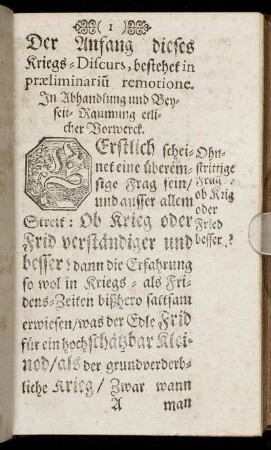 ( 1 )
Der Anfang dieses
Kriegs-Discurs, bestehet in
præliminariũ remotione.
In Abhandlung und Bey-
seit-Raumung etli-
cher Vorwerck.
ERstlich schei-
net eine überem-
sige Frag sein/
und ausser allem
Streit: Ob Krieg oder
Frid verständiger und
besser? dann die Erfahrung
so wol in Kriegs- als Fri-
dens-Zeiten bißhero sattsam
erwiesen/was der Edle Frid
für ein hochschätzbar Klei-
nod/als der grundverderb-
liche Krieg/ Zwar wann
A man
Ohn-
strittige
Frag
ob Krig
oder
Fried
besser.?